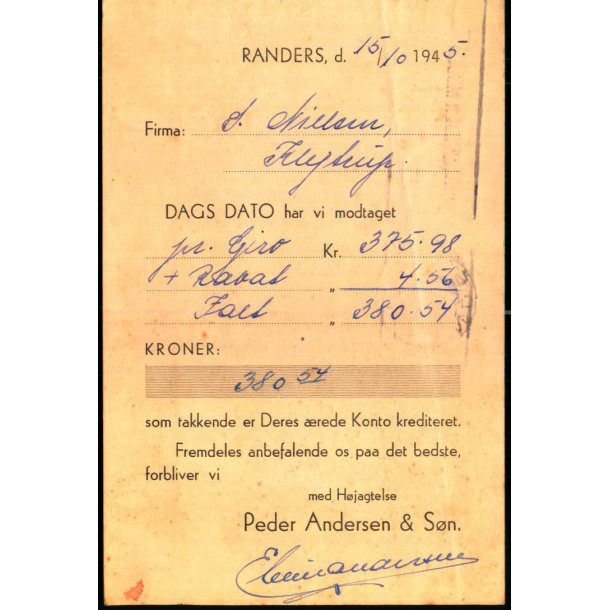 RANDERS, d. 15/10 1945.
Firma: S. Nielsen,
DAGS DATO har vi modtaget
pr. Giro Kr. 375.98
+ Rabat " 4.56
Ialt " 380.54
KRONER:
380 54
som takkende er Deres ærede Konto krediteret.
Fremdeles anbefalende os paa det bedste,
forbliver vi
med Højagtelse
Peder Andersen & Søn.